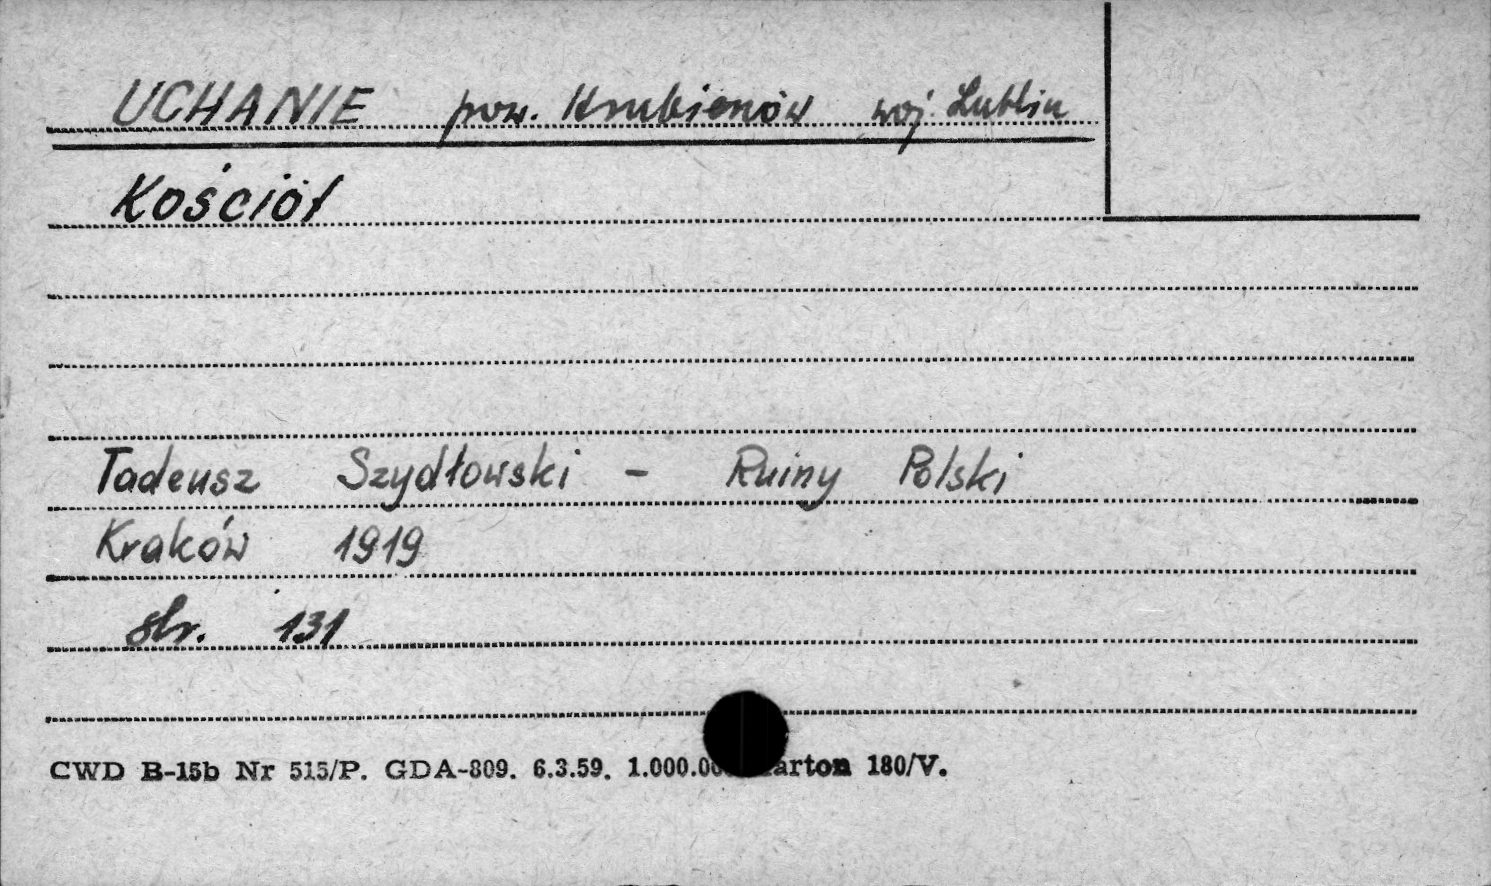 UCHANIE pow. Hrubieszów woj. Lublin
Kościół
Tadeusz Szydłowski - Ruiny Polski
Kraków 1919
str. 131
CWD B-15b Nr 515/P. GDA-809. 6.3.59. 180/V.